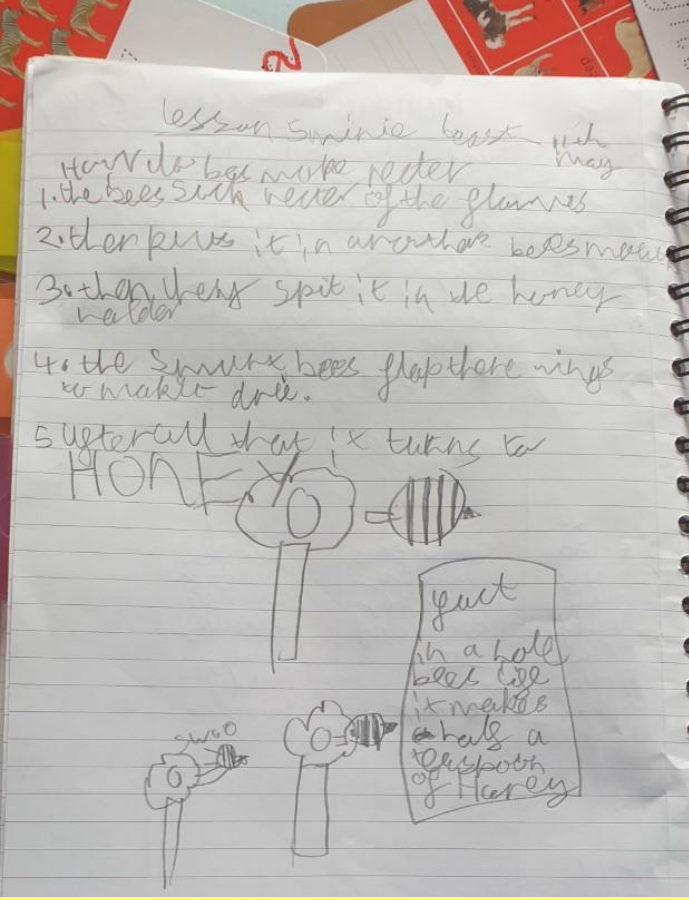 lesson 5 minie beast 11th
may
How do bes make necter
1. the bees Suck necter of the
2. then puts it in anorther bees mouth
3. then they spit it in the honey
halder
4. the bees flap there wings
to make it drie.
5 after all that it turns to
HONEY
fact
in a hole
bees life
it makes
half a
teaspoon
of Honey